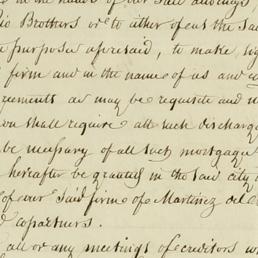 in the name of our said attorneys,
io Brothers or to either of eut the Said
purposes aforesaid, to make, sig
firm and in the name of us and
ruments as may be requisite and n
you shall require all such discharg
be necessary of all such mortgage
hereafter be granted in the said city o
of our Said firm of Martinez del
d copartners.
all or any meetings of creditors w